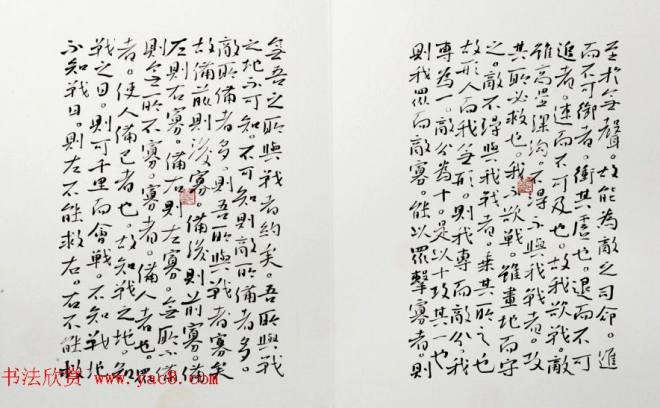 至於無聲。故能為敵之司命。進
而不可御者。衝其虛也。退而不可
追者。速而不可及也。故我欲戰。敵
雖高壘深溝。不得不與我戰者。攻
其所必救也。我不欲戰。雖畫地而守
之。敵不得與我戰者。乖其所之也
故形人而我無形。則我專而敵分。我
專為一。敵分為十。是以十攻其一也
則我眾而敵寡。能以眾擊寡者。則
吾之所與戰者約矣。吾所與戰
之地不可知。不可知則敵所備者多。
敵所備者多。則吾所與戰者寡矣
故備前則後寡。備後則前寡。備
左則右寡。備右則左寡。無所不備
則無所不寡。寡者。備人者也。眾
者。使人備己者也。故知戰之地。知
戰之日。則可千里而會戰。不知戰地
不知戰日。則左不能救右。右不能救
书法欣赏 www.yac8.com